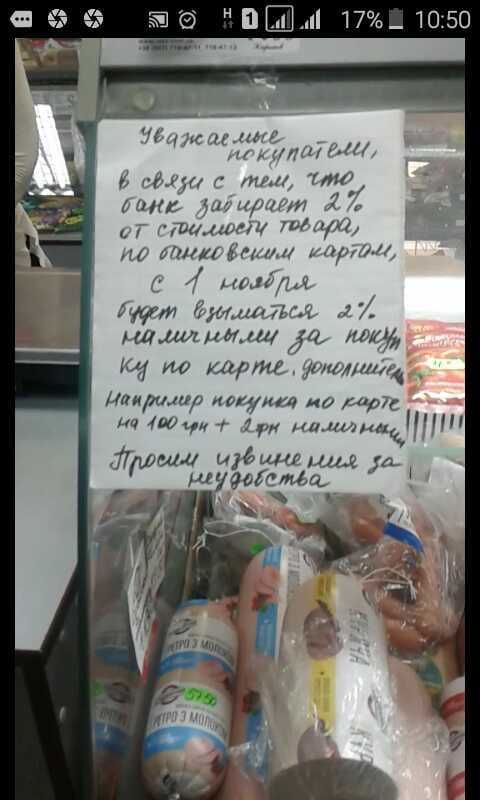 H 1 17% 10:50
Уважаемые
покупатели,
в связи с тем, что
банк забирает 2%
от стоимости товара,
по банковским картам,
с 1 ноября
будет взыматься 2%
наличными за покуп
ку по карте. дополнительно
Например покупка по карте
на 100 грн + 2 грн наличными
Просим извинения за
неудобства
РЕТРО З МОЛОКОМ
5750
РЕТРО З МОЛОКОМ